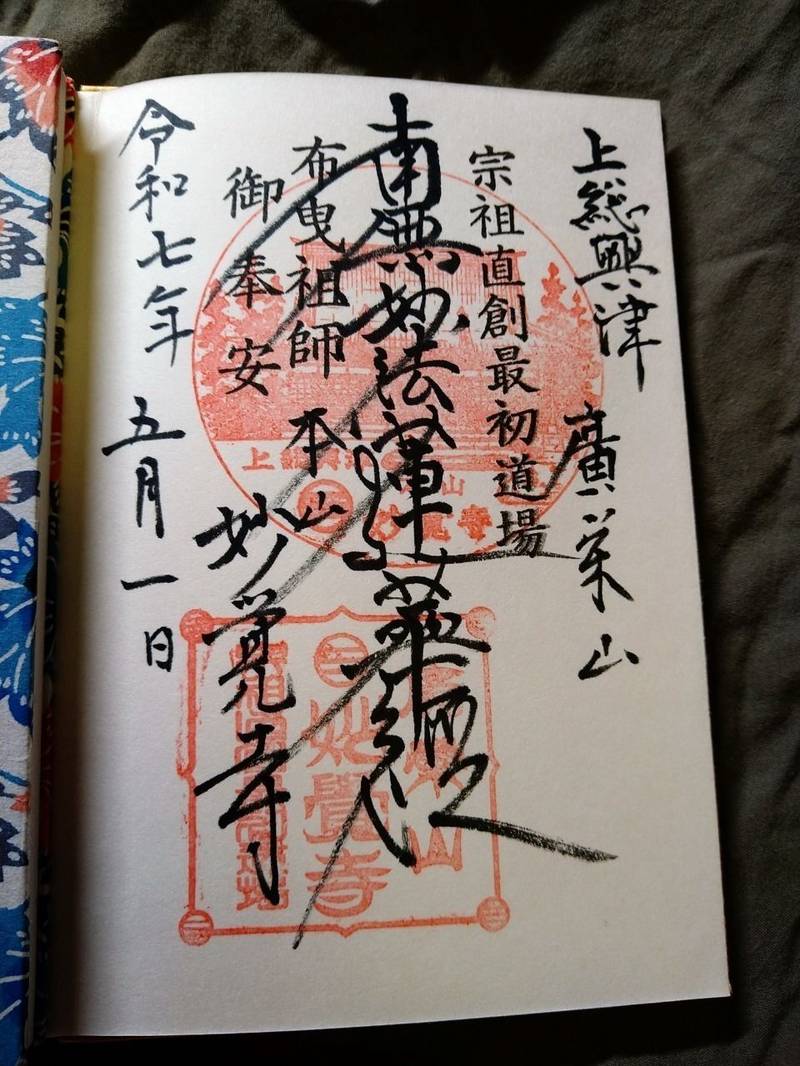 上総興津 廣栄山
宗祖直創最初道場
南無妙法蓮華経
布曳祖師 本山
御奉安
妙覚寺
令和七年 五月一日
妙覺寺